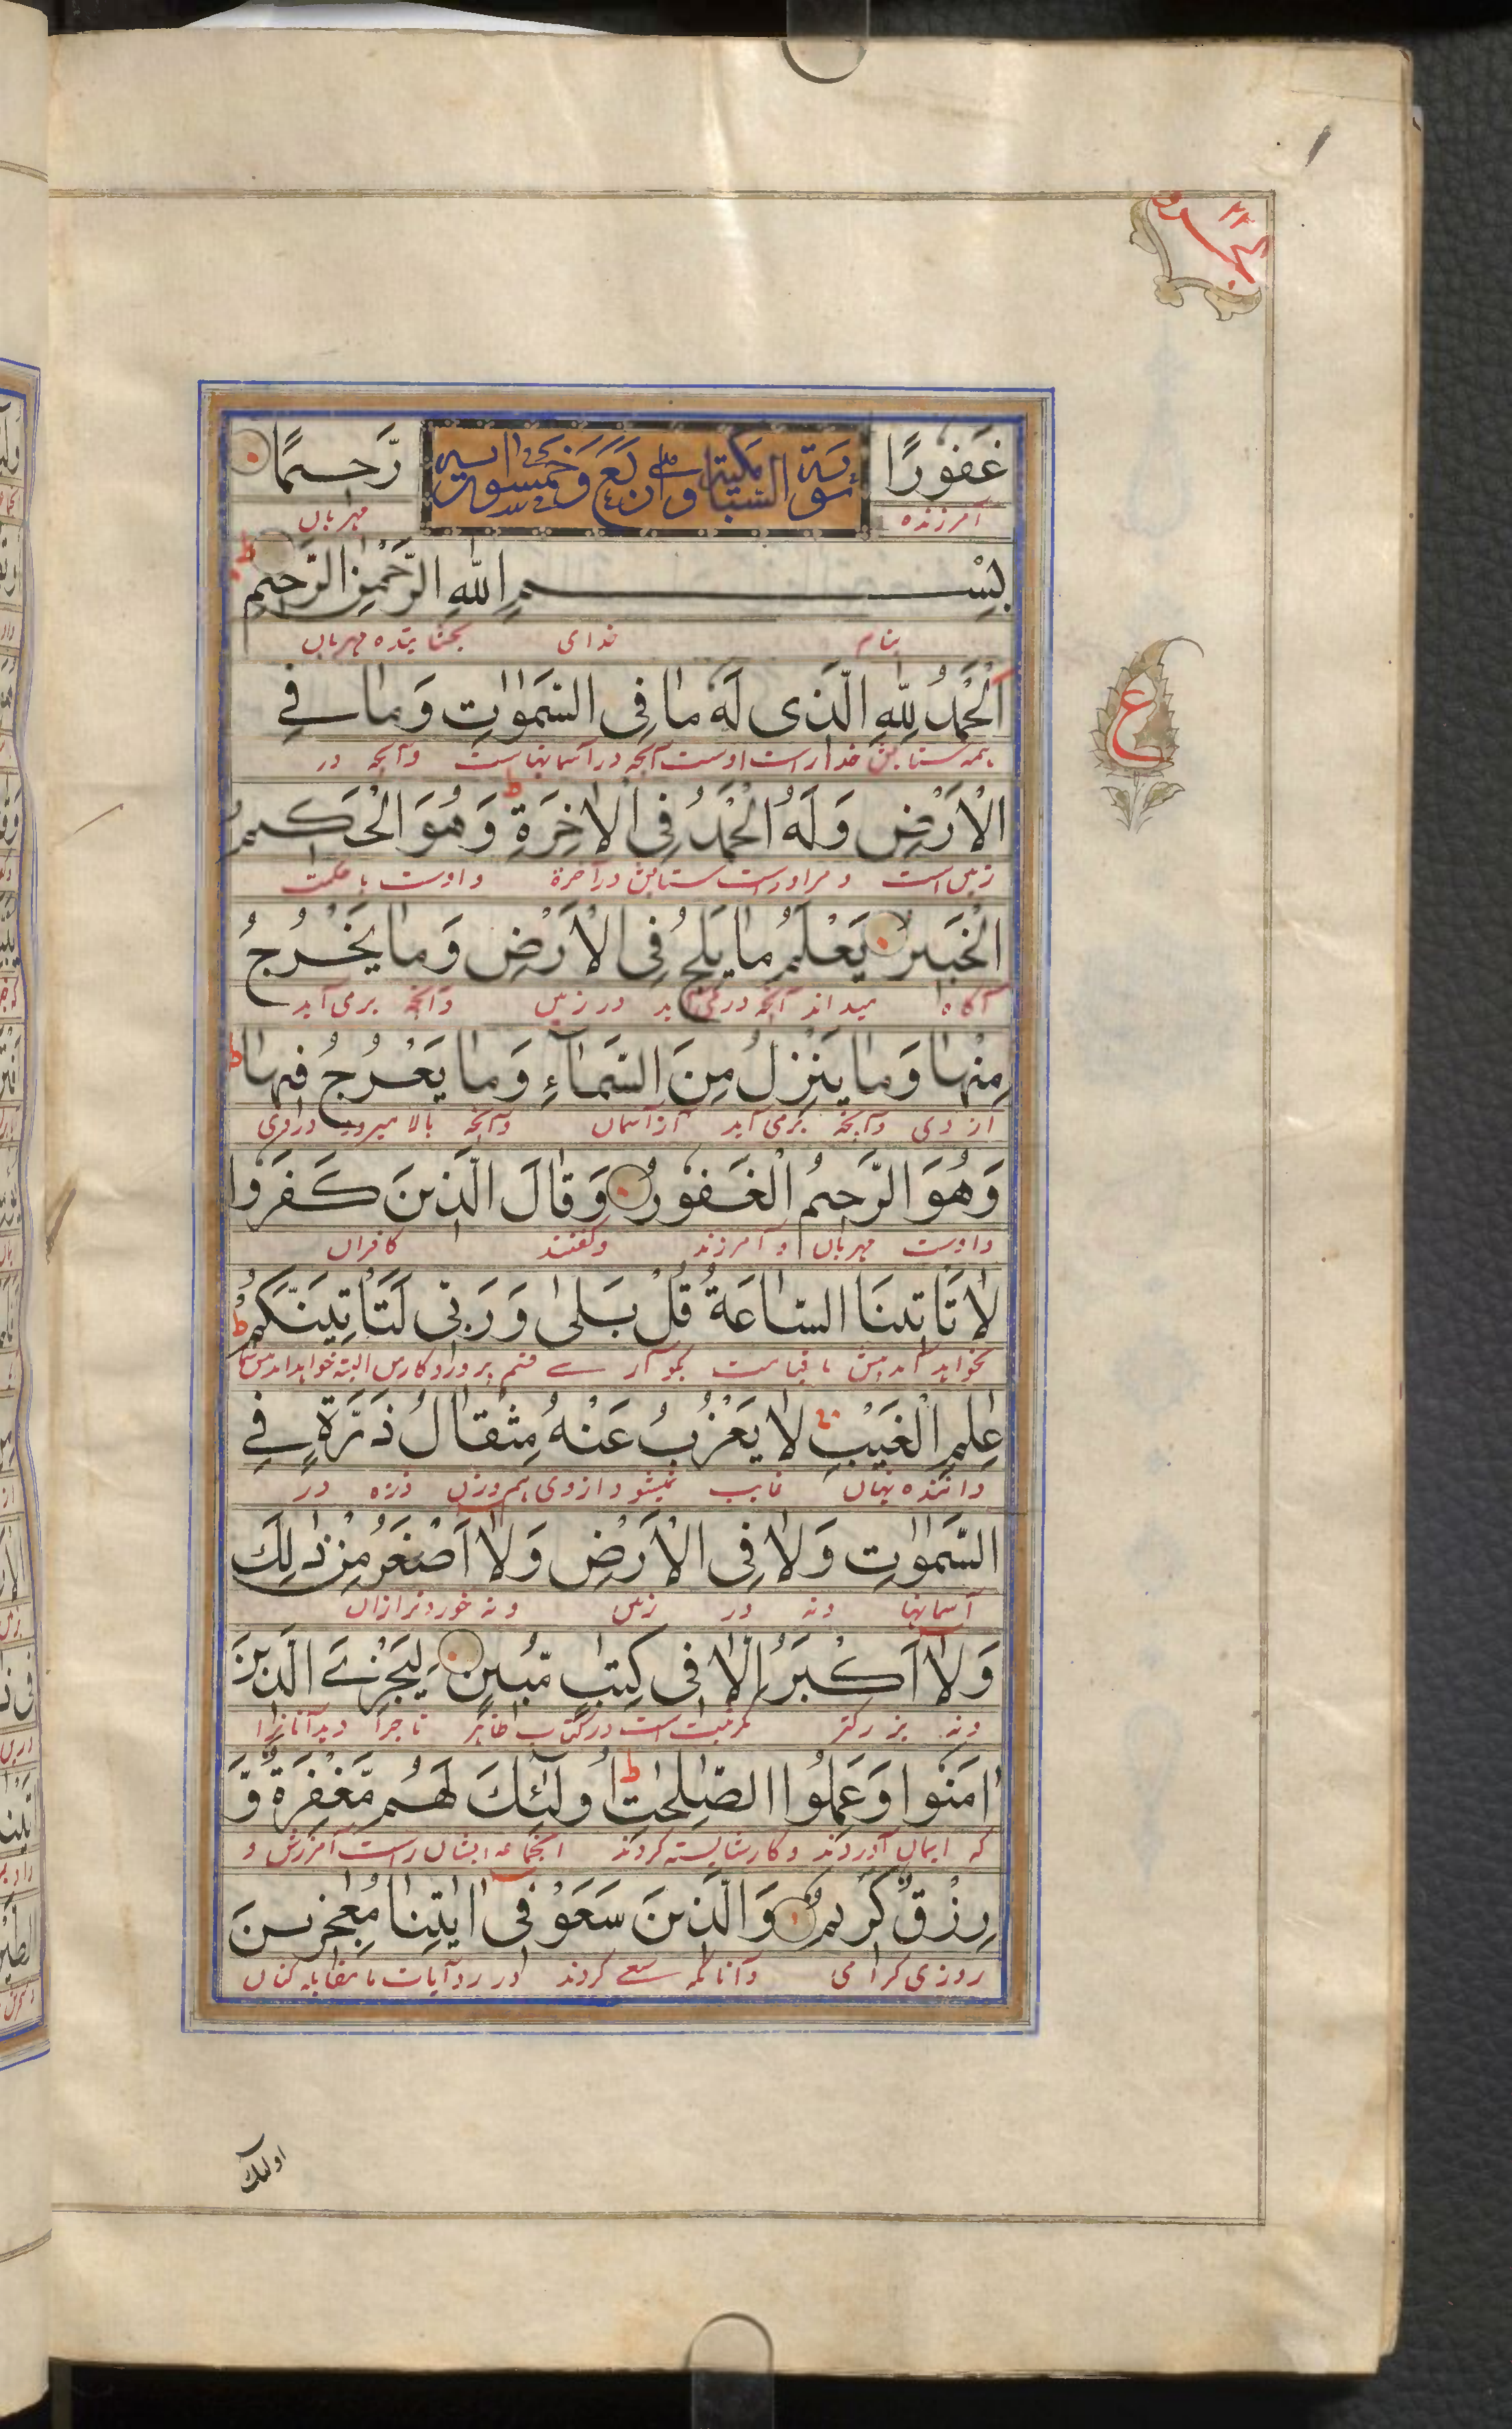 غَفُورًا سورة السبا مكية وهي اربع وخمسون اية رَّحِيمًا
آمرزنده مهربان
بِسْمِ اللّٰهِ الرَّحْمٰنِ الرَّحِيمِ
بنام خدای بخشاینده مهربان
اَلْحَمْدُ لِلّٰهِ الَّذِی لَهٗ مَا فِی السَّمٰوٰتِ وَمَا فِے
همه ستایش خداراست اوست آنچه در آسمانهاست وآنچه در
الْاَرْضِ وَلَهُ الْحَمْدُ فِی الْاٰخِرَةِ ط وَهُوَ الْحَکِیمُ
زمین است ومر اوراست ستایش در آخرة واوست با حکمت
الْخَبِیرُ یَعْلَمُ مَا یَلِجُ فِی الْاَرْضِ وَمَا یَخْرُجُ
آگاه میداند آنچه در می آید در زمین وآنچه برمی آید
مِنْهَا وَمَا یَنْزِلُ مِنَ السَّمَآءِ وَمَا یَعْرُجُ فِیهَا ط
از وی وآنچه می آید از آسمان وآنچه بالا میرود دروی
وَهُوَ الرَّحِیمُ الْغَفُورُ وَقَالَ الَّذِینَ کَفَرُوا
واوست مهربان و آمرزند وگفتند کافران
لَا تَاْتِینَا السَّاعَةُ قُلْ بَلٰی وَرَبِّی لَتَاْتِیَنَّکُمْ ط
نخواهد آمد پیش ما قیامت بگو آرے قسم پروردگار من البته خواهد آمد
عٰلِمِ الْغَیْبِ لَا یَعْزُبُ عَنْهُ مِثْقَالُ ذَرَّةٍ فِے
داننده نهان غایب نمیشود از وی هم وزن ذره در
السَّمٰوٰتِ وَلَا فِی الْاَرْضِ وَلَا اَصْغَرُ مِنْ ذٰلِكَ
آسمانها ونه در زمین ونه خوردتر ازان
وَلَا اَکْبَرُ اِلَّا فِی کِتٰبٍ مُّبِینٍ لِیَجْزِیَ الَّذِینَ
ونه بزرگتر مگر ثبت است در کتاب ظاهر تا جزا دهد آنانرا
اٰمَنُوا وَعَمِلُوا الصّٰلِحٰتِ ط اُولٰٓئِكَ لَهُمْ مَّغْفِرَةٌ وَّ
که ایمان آوردند وکار شایسته کردند آنجماعه ایشان راست آمرزش و
رِزْقٌ کَرِیمٌ وَالَّذِینَ سَعَوْ فِی اٰیٰتِنَا مُعٰجِزِینَ
روزی گرامی وآنانکه سعے کردند در رد آیات ما مقابله کنان
اولئك
ع